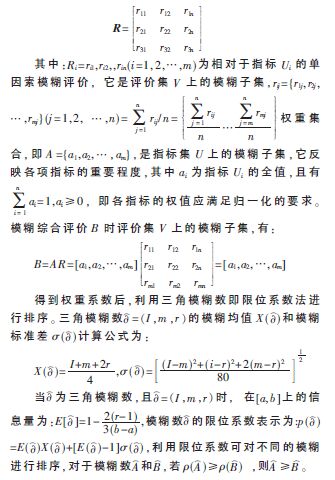 R= [ r11 r12 r1n
r21 r22 r2n
r31 r32 r3n ]
其中:Ri=ri1,ri2,,rin(i=1,2,⋯,m)为相对于指标 Ui 的单
因素模糊评价，它是评价集 V 上的模糊子集,rij={r1j,r2j,
⋯,rmj}(j=1,2, ⋯,n)= ∑(j=1→n) rij/n= [ ∑(j=1→n) rij / n ⋯ ∑(j=m→n) rmj / n ] 权重集
合，即 A ={a1,a2,⋯, am},是指标集 U 上的模糊子集,它反
映各项指标的重要程度,其中 ai 为指标 Ui 的全值,且有
∑(i=1→n) ai=1,ai≥0， 即各指标的权值应满足归一化的要求。
模糊综合评价 B 时评价集 V 上的模糊子集,有:
B=AR=[a1,a2,⋯,am] [ r11 r12 r1n
r21 r22 r2n
rm1 rm2 rmn ] =[a1,a2,⋯,am]
得到权重系数后，利用三角模糊数即限位系数法进
行排序。三角模糊数∂̂=(I,m,r)的模糊均值 X(∂̂)和模糊
标准差 σ(∂̂)计算公式为：
X(∂̂)= (I+m+2r)/4 ,σ(∂̂)= [ ((I-m)²+(i-r)²+2(m-r)²)/80 ]^(1/2)
当∂̂ 为三角模糊数,且∂̂=(I,m,r)时， 在[a,b]上的信
息量为:E[∂̂]=1- 2(r-1)/3(b-a) ,模糊数∂̂的限位系数表示为:p(∂̂)
=E(∂̂)X(∂̂)+[E(∂̂)-1]σ(∂̂),利用限位系数可对不同的模糊
进行排序,对于模糊数Â和B̂,若 ρ(Â)≥ρ(B̂) ,则Â≥B̂。